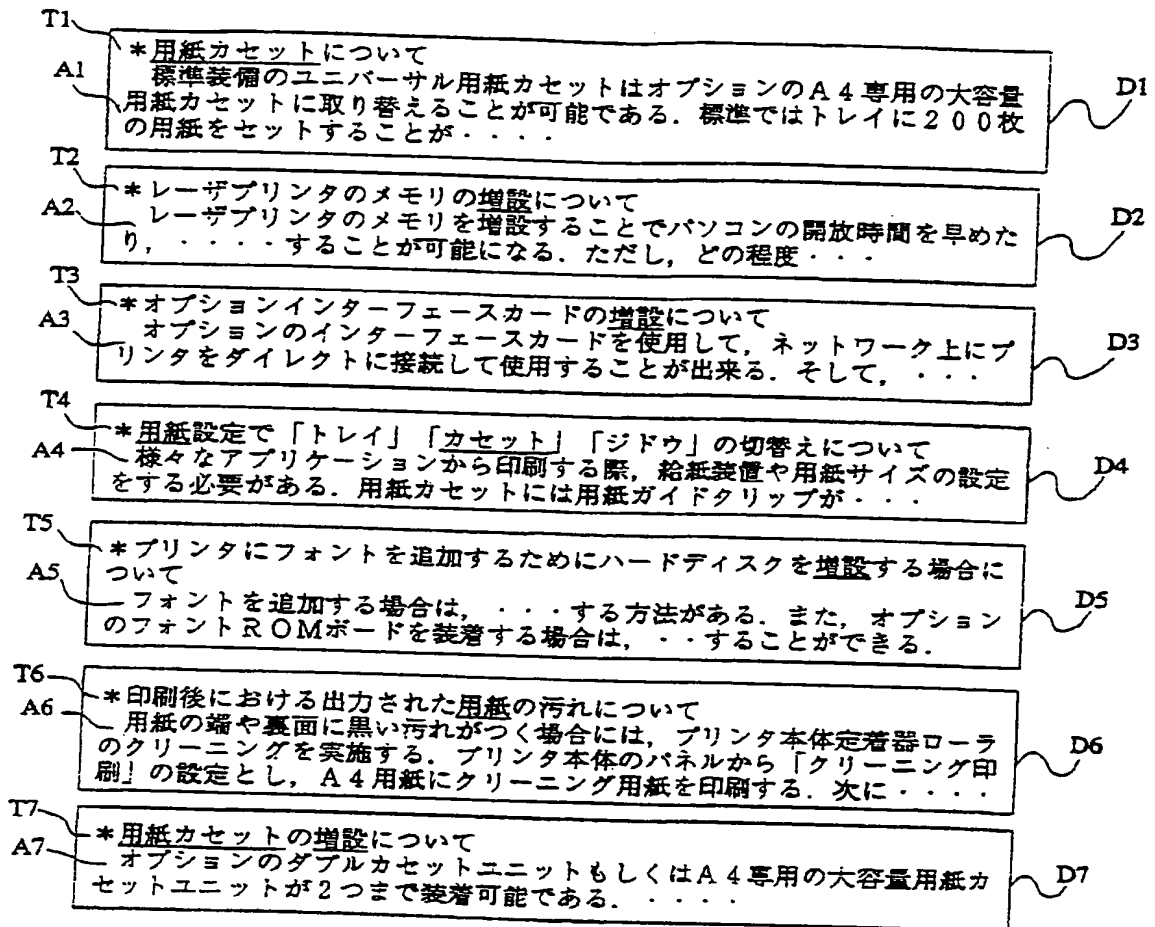 T1
＊用紙カセットについて
A1
標準装備のユニバーサル用紙カセットはオプションのＡ４専用の大容量
用紙カセットに取り替えることが可能である．標準ではトレイに２００枚
の用紙をセットすることが・・・・
D1
T2
＊レーザプリンタのメモリの増設について
A2
レーザプリンタのメモリを増設することでパソコンの開放時間を早めた
り，・・・・することが可能になる．ただし，どの程度・・・
D2
T3
＊オプションインターフェースカードの増設について
A3
オプションのインターフェースカードを使用して，ネットワーク上にプ
リンタをダイレクトに接続して使用することが出来る．そして，・・・
D3
T4
＊用紙設定で「トレイ」「カセット」「ジドウ」の切替えについて
A4
様々なアプリケーションから印刷する際，給紙装置や用紙サイズの設定
をする必要がある．用紙カセットには用紙ガイドクリップが・・・
D4
T5
＊プリンタにフォントを追加するためにハードディスクを増設する場合に
ついて
A5
フォントを追加する場合は，・・・する方法がある．また，オプション
のフォントＲＯＭボードを装着する場合は，・・することができる．
D5
T6
＊印刷後における出力された用紙の汚れについて
A6
用紙の端や裏面に黒い汚れがつく場合には，プリンタ本体定着器ローラ
のクリーニングを実施する．プリンタ本体のパネルから「クリーニング印
刷」の設定とし，Ａ４用紙にクリーニング用紙を印刷する．次に・・・・
D6
T7
＊用紙カセットの増設について
A7
オプションのダブルカセットユニットもしくはＡ４専用の大容量用紙カ
セットユニットが２つまで装着可能である．・・・・
D7